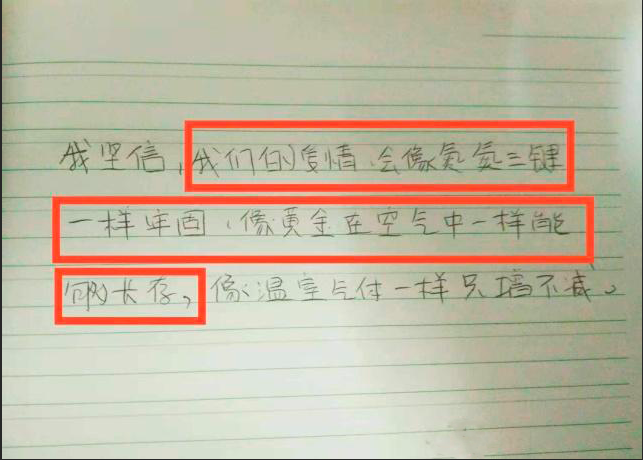 我坚信，我们的爱情，会像氮氮三键
一样牢固，像黄金在空气中一样能
够长存，像温室气体一样只增不减。